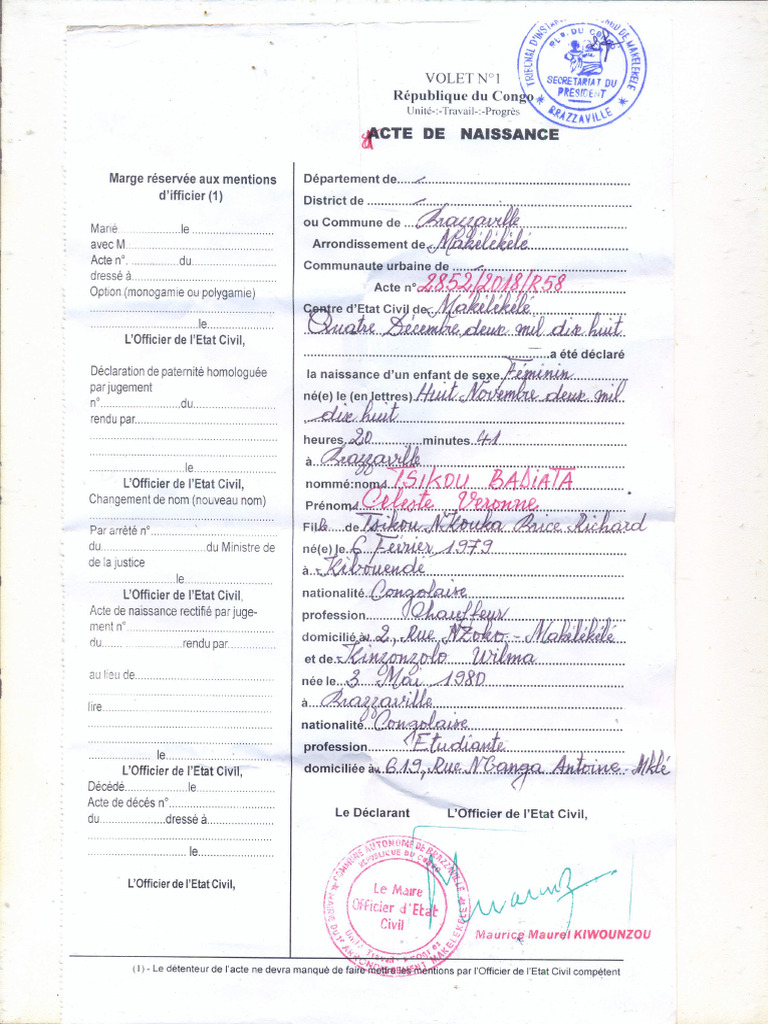 TRIBUNAL D'INSTANCE DE MAKELEKELE
REP. DU CONGO
SECRETARIAT DU
PRESIDENT
* BRAZZAVILLE *
VOLET N°1
République du Congo
Unité-:-Travail-:-Progrès
ACTE DE NAISSANCE
Marge réservée aux mentions
d'ifficier (1)
Marié..................le ........................
avec M..........................................
Acte n°. ................du.....................
dressé à.......................................
Option (monogamie ou polygamie)
..................................le.................
L'Officier de l'Etat Civil,
Déclaration de paternité homologuée
par jugement
n°........................du........................
rendu par.......................................
..................................le.................
L'Officier de l'Etat Civil,
Changement de nom (nouveau nom)
Par arrêté n°..................................
du................................du Ministre de
de la justice
........................le...........................
L'Officier de l'Etat Civil,
Acte de naissance rectifié par juge-
ment n°.........................................
du........ ................rendu par..............
au lieu de......................................
lire................................................
....................le...............................
L'Officier de l'Etat Civil,
Décédé....................le.....................
Acte de décés n°............................
du.....................dressé à................
..............................le.....................
L'Officier de l'Etat Civil,
Département de.....
District de .....
ou Commune de Brazzaville
Arrondissement de Makélékélé
Communaute urbaine de .....
Acte n° 2852/2018/R58
Centre d'Etat Civil de Makélékélé
Quatre Decembre deux mil dix huit
..................a été déclaré
la naissance d'un enfant de sexe Féminin
né(e) le (en lettres) Huit Novembre deux mil
dix huit
heures 20 minutes 41
à Brazzaville
nommé:nom TSIKOU BADIATA
Prénom Celeste Veronne
Fille de Tsikou NKouka Brice Richard
né(e) le 6 Février 1979
à Kibouendé
nationalité Congolaise
profession Chauffeur
domicilié à 2, Rue NZoko - Makélékélé
et de Kinzonzolo Wilma
née le 3 Mai 1980
à Brazzaville
nationalité Congolaise
profession Etudiante
domiciliée à 619, Rue NGanga Antoine - Mklé
Le Déclarant L'Officier de l'Etat Civil,
COMMUNE AUTONOME DE BRAZZAVILLE
REPUBLIQUE DU CONGO
Le Maire
Officier d'Etat
Civil
Maurice Maurel KIWOUNZOU
(1) - Le détenteur de l'acte ne devra manqué de faire mettre les mentions par l'Officier de l'Etat Civil compétent